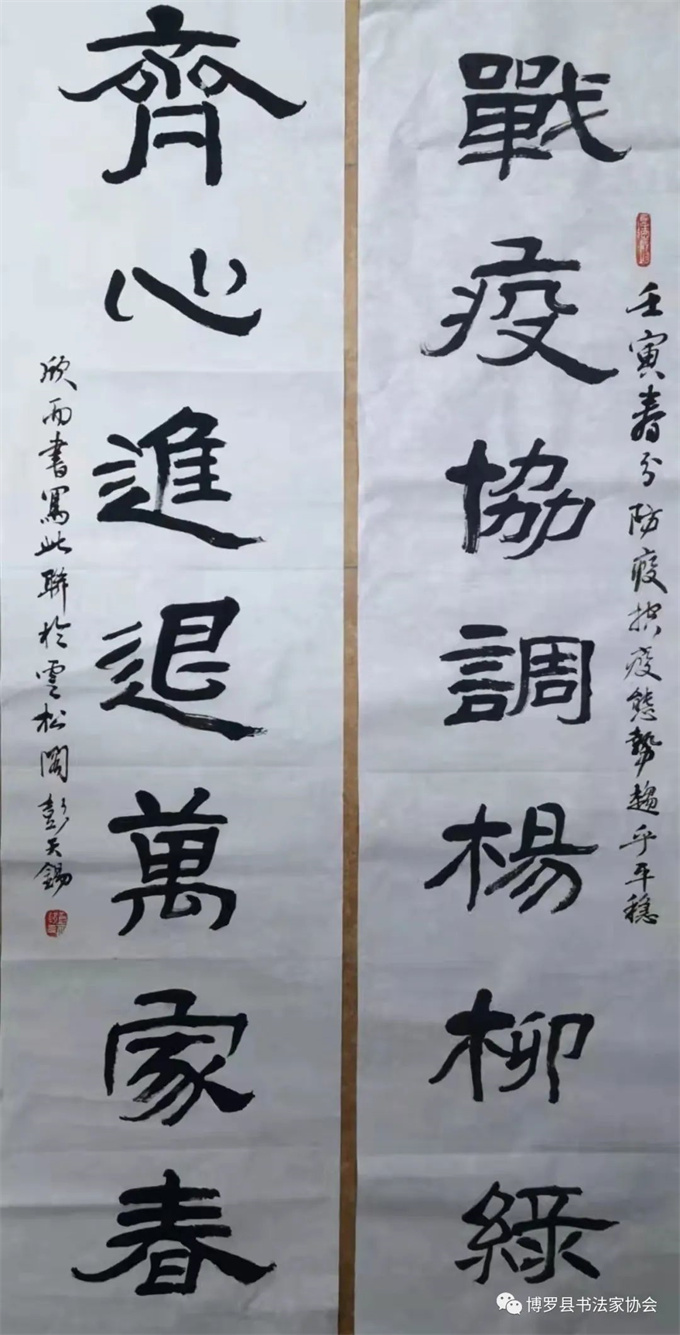 戰疫協調楊柳綠
壬寅春分防疫控疫態勢趨乎平穩
齊心進退萬家春
欣而書寫此聯於雲松閣彭天錫
博罗县书法家协会